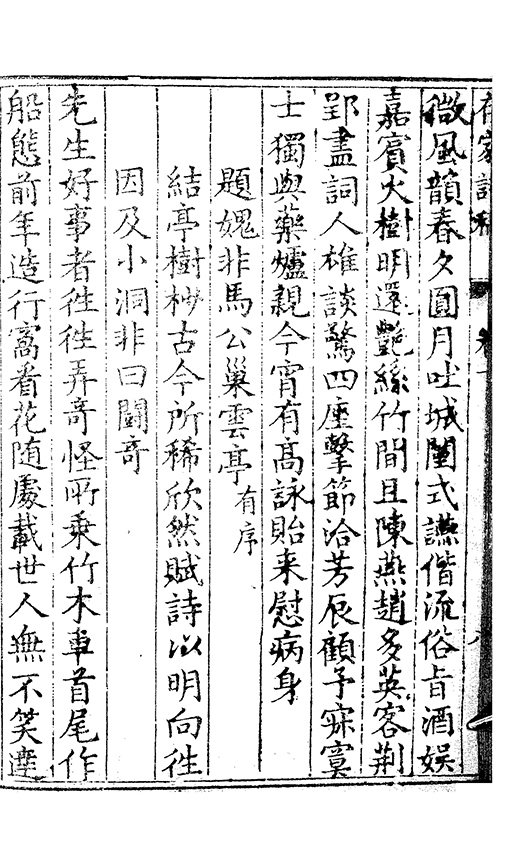 微風韻春夕圓月吐城闉式讌偕流俗旨酒娯
嘉賓火樹明還艶絲竹間且陳燕趙多英客荆
郢盡詞人雄談驚四座擊節洽芳辰顧予寂寞
士獨與藥爐親今宵有高詠貽来慰病身
題媿非馬公巢雲亭有序
結亭樹杪古今所稀欣然賦詩以明向徃
因及小洞非曰闘奇
先生好事者徃徃弄奇怪所乗竹木車首尾作
船態前年造行窩看花随處載世人無不笑達